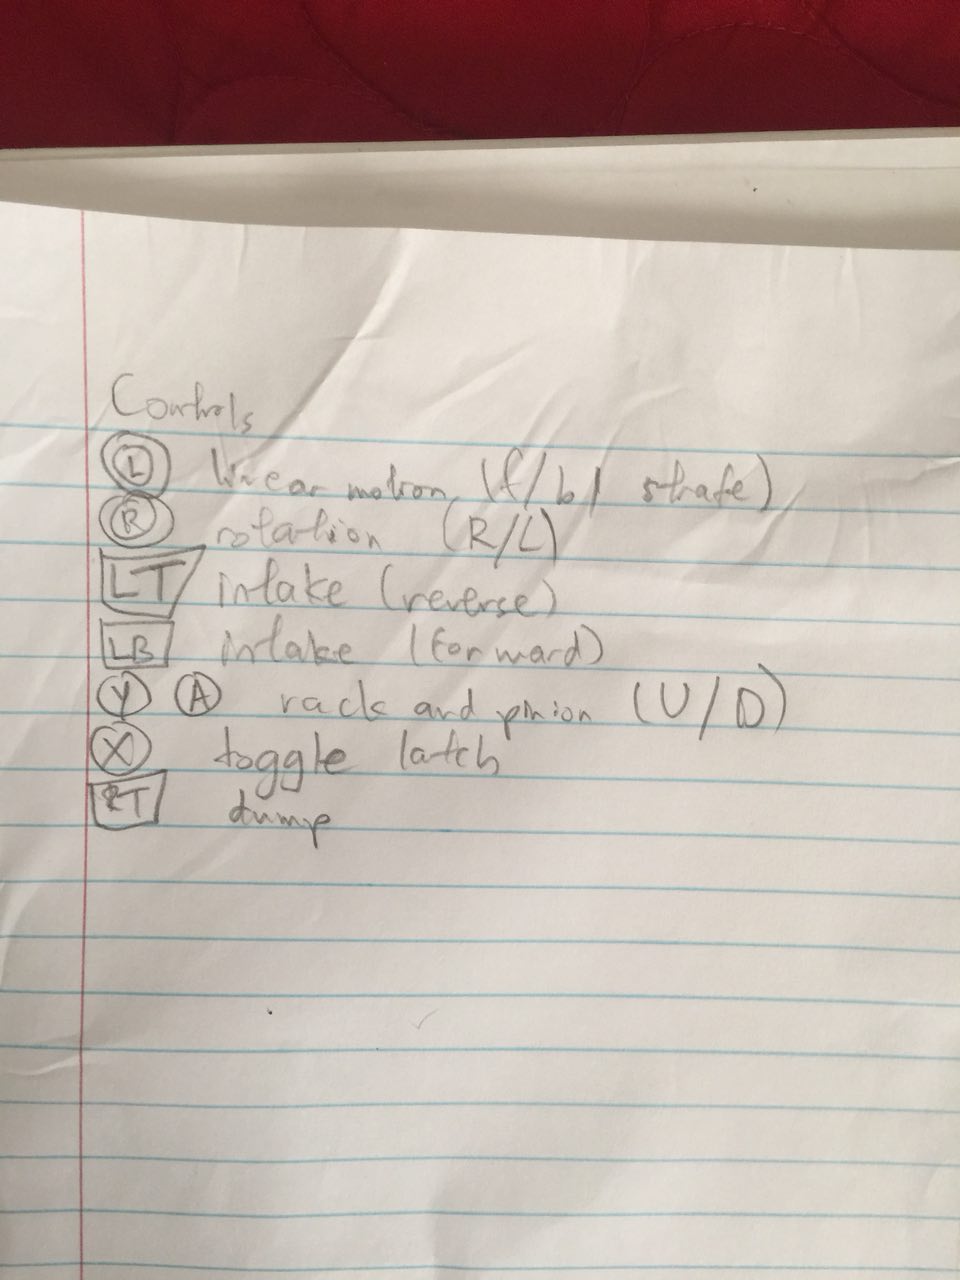 Controls
L linear motion (f/b/ strafe)
R rotation (R/L)
LT intake (reverse)
LB intake (forward)
Y A rack and pinion (U/D)
X toggle latch
RT dump